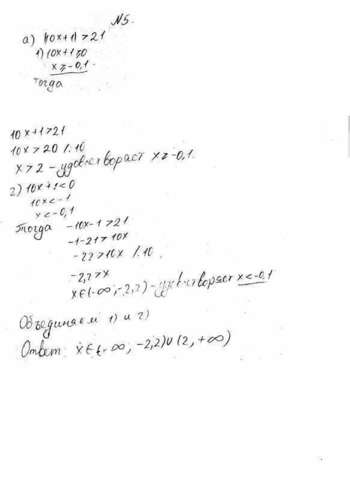 №5.
а) |10x+1| > 21
1) 10x+1≥0
x ≥ -0,1.
Тогда
10x+1>21
10x > 20 /:10
x > 2 - удовлетворяет x ≥ -0,1.
2) 10x+1<0
10x<-1
x<-0,1
Тогда -10x-1>21
-1-21>10x
-22>10x /:10
-2,2>x
x∈(-∞; -2,2) - удовлетворяет x<-0,1
Объединяем 1) и 2)
Ответ: x∈(-∞; -2,2)∪(2, +∞)